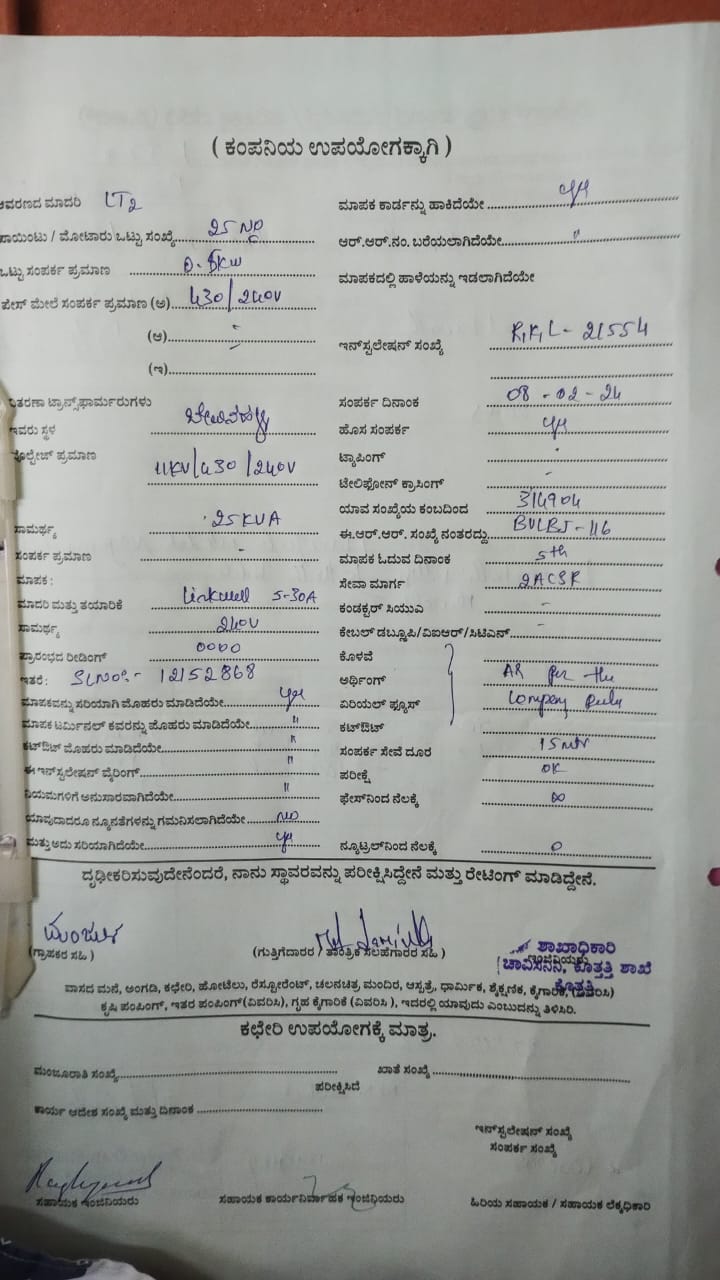 ( ಕಂಪನಿಯ ಉಪಯೋಗಕ್ಕಾಗಿ )
ಆವರಣದ ಮಾದರಿ LT2
ಪಾಯಿಂಟು / ಮೋಟಾರು ಒಟ್ಟು ಸಂಖ್ಯೆ 25 No
ಒಟ್ಟು ಸಂಪರ್ಕ ಪ್ರಮಾಣ
ಪೇಸ್ ಮೇಲೆ ಸಂಪರ್ಕ ಪ್ರಮಾಣ (ಅ) 430/240V
(ಆ) -
(ಇ) -
ವಿತರಣಾ ಟ್ರಾನ್ಸ್‌ಫಾರ್ಮರುಗಳು
ಇವರು ಸ್ಥಳ
ವೋಲ್ಟೇಜ್ ಪ್ರಮಾಣ 11KV/430/240V
ಸಾಮರ್ಥ್ಯ 25KVA
ಸಂಪರ್ಕ ಪ್ರಮಾಣ -
ಮಾಪಕ :
ಮಾದರಿ ಮತ್ತು ತಯಾರಿಕೆ 5-30A
ಸಾಮರ್ಥ್ಯ 240V
ಪ್ರಾರಂಭದ ರೀಡಿಂಗ್ 0000
ಇತರೆ : SLNo:- 12152868
ಮಾಪಕವನ್ನು ಸರಿಯಾಗಿ ಮೊಹರು ಮಾಡಿದೆಯೇ yes
ಮಾಪಕ ಟರ್ಮಿನಲ್ ಕವರನ್ನು ಮೊಹರು ಮಾಡಿದೆಯೇ "
ಕಟ್‌ಔಟ್ ಮೊಹರು ಮಾಡಿದೆಯೇ "
ಈ ಇನ್‌ಸ್ಟಲೇಷನ್ ವೈರಿಂಗ್ "
ನಿಯಮಗಳಿಗೆ ಅನುಸಾರವಾಗಿದೆಯೇ "
ಯಾವುದಾದರೂ ನ್ಯೂನತೆಗಳನ್ನು ಗಮನಿಸಲಾಗಿದೆಯೇ no
ಮತ್ತು ಅದು ಸರಿಯಾಗಿದೆಯೇ yes
ಮಾಪಕ ಕಾರ್ಡನ್ನು ಹಾಕಿದೆಯೇ yes
ಆರ್.ಆರ್.ನಂ. ಬರೆಯಲಾಗಿದೆಯೇ "
ಮಾಪಕದಲ್ಲಿ ಹಾಳೆಯನ್ನು ಇಡಲಾಗಿದೆಯೇ
ಇನ್‌ಸ್ಟಲೇಷನ್ ಸಂಖ್ಯೆ 21554
ಸಂಪರ್ಕ ದಿನಾಂಕ 08-02-24
ಹೊಸ ಸಂಪರ್ಕ yes
ಟ್ಯಾಪಿಂಗ್ -
ಟೆಲಿಫೋನ್ ಕ್ರಾಸಿಂಗ್ -
ಯಾವ ಸಂಖ್ಯೆಯ ಕಂಬದಿಂದ 314904
ಈ.ಆರ್.ಆರ್. ಸಂಖ್ಯೆ ನಂತರದ್ದು
ಮಾಪಕ ಓದುವ ದಿನಾಂಕ 5th
ಸೇವಾ ಮಾರ್ಗ 2ACSR
ಕಂಡಕ್ಟರ್ ಸಿಯುಎ -
ಕೇಬಲ್ ಡಬ್ಲ್ಯೂಪಿ/ವಿಐಆರ್/ಸಿಟಿಎನ್ -
ಕೊಳವೆ
ಅರ್ಥಿಂಗ್ As per the
ಏರಿಯಲ್ ಫ್ಯೂಸ್ Company Rules
ಕಟ್‌ಔಟ್
ಸಂಪರ್ಕ ಸೇವೆ ದೂರ 15 mtr
ಪರೀಕ್ಷೆ OK
ಫೇಸ್‌ನಿಂದ ನೆಲಕ್ಕೆ ∞
ನ್ಯೂಟ್ರಲ್‌ನಿಂದ ನೆಲಕ್ಕೆ 0
ದೃಢೀಕರಿಸುವುದೇನೆಂದರೆ, ನಾನು ಸ್ಥಾವರವನ್ನು ಪರೀಕ್ಷಿಸಿದ್ದೇನೆ ಮತ್ತು ರೇಟಿಂಗ್ ಮಾಡಿದ್ದೇನೆ.
ಮಂಜುಳ
(ಗ್ರಾಹಕರ ಸಹಿ) (ಗುತ್ತಿಗೆದಾರರ / ತಾಂತ್ರಿಕ ಸಲಹೆಗಾರರ ಸಹಿ)
ಶಾಖಾಧಿಕಾರಿ
ಚಾವಿಸನಿನಿ, ಕೊತ್ತತ್ತಿ ಶಾಖೆ
ಕೊತ್ತತ್ತಿ
ವಾಸದ ಮನೆ, ಅಂಗಡಿ, ಕಛೇರಿ, ಹೋಟೆಲು, ರೆಸ್ಟೋರೆಂಟ್, ಚಲನಚಿತ್ರ ಮಂದಿರ, ಆಸ್ಪತ್ರೆ, ಧಾರ್ಮಿಕ, ಶೈಕ್ಷಣಿಕ, ಕೈಗಾರಿಕೆ, (ವಿವರಿಸಿ)
ಕೃಷಿ ಪಂಪಿಂಗ್, ಇತರ ಪಂಪಿಂಗ್(ವಿವರಿಸಿ), ಗೃಹ ಕೈಗಾರಿಕೆ (ವಿವರಿಸಿ ), ಇದರಲ್ಲಿ ಯಾವುದು ಎಂಬುದನ್ನು ತಿಳಿಸಿರಿ.
ಕಛೇರಿ ಉಪಯೋಗಕ್ಕೆ ಮಾತ್ರ.
ಮಂಜೂರಾತಿ ಸಂಖ್ಯೆ ಖಾತೆ ಸಂಖ್ಯೆ
ಪರೀಕ್ಷಿಸಿದೆ
ಕಾರ್ಯ ಆದೇಶ ಸಂಖ್ಯೆ ಮತ್ತು ದಿನಾಂಕ
ಇನ್‌ಸ್ಟಲೇಷನ್ ಸಂಖ್ಯೆ
ಸಂಪರ್ಕ ಸಂಖ್ಯೆ
ಸಹಾಯಕ ಇಂಜಿನಿಯರು ಸಹಾಯಕ ಕಾರ್ಯನಿರ್ವಾಹಕ ಇಂಜಿನಿಯರು ಹಿರಿಯ ಸಹಾಯಕ / ಸಹಾಯಕ ಲೆಕ್ಕಾಧಿಕಾರಿ